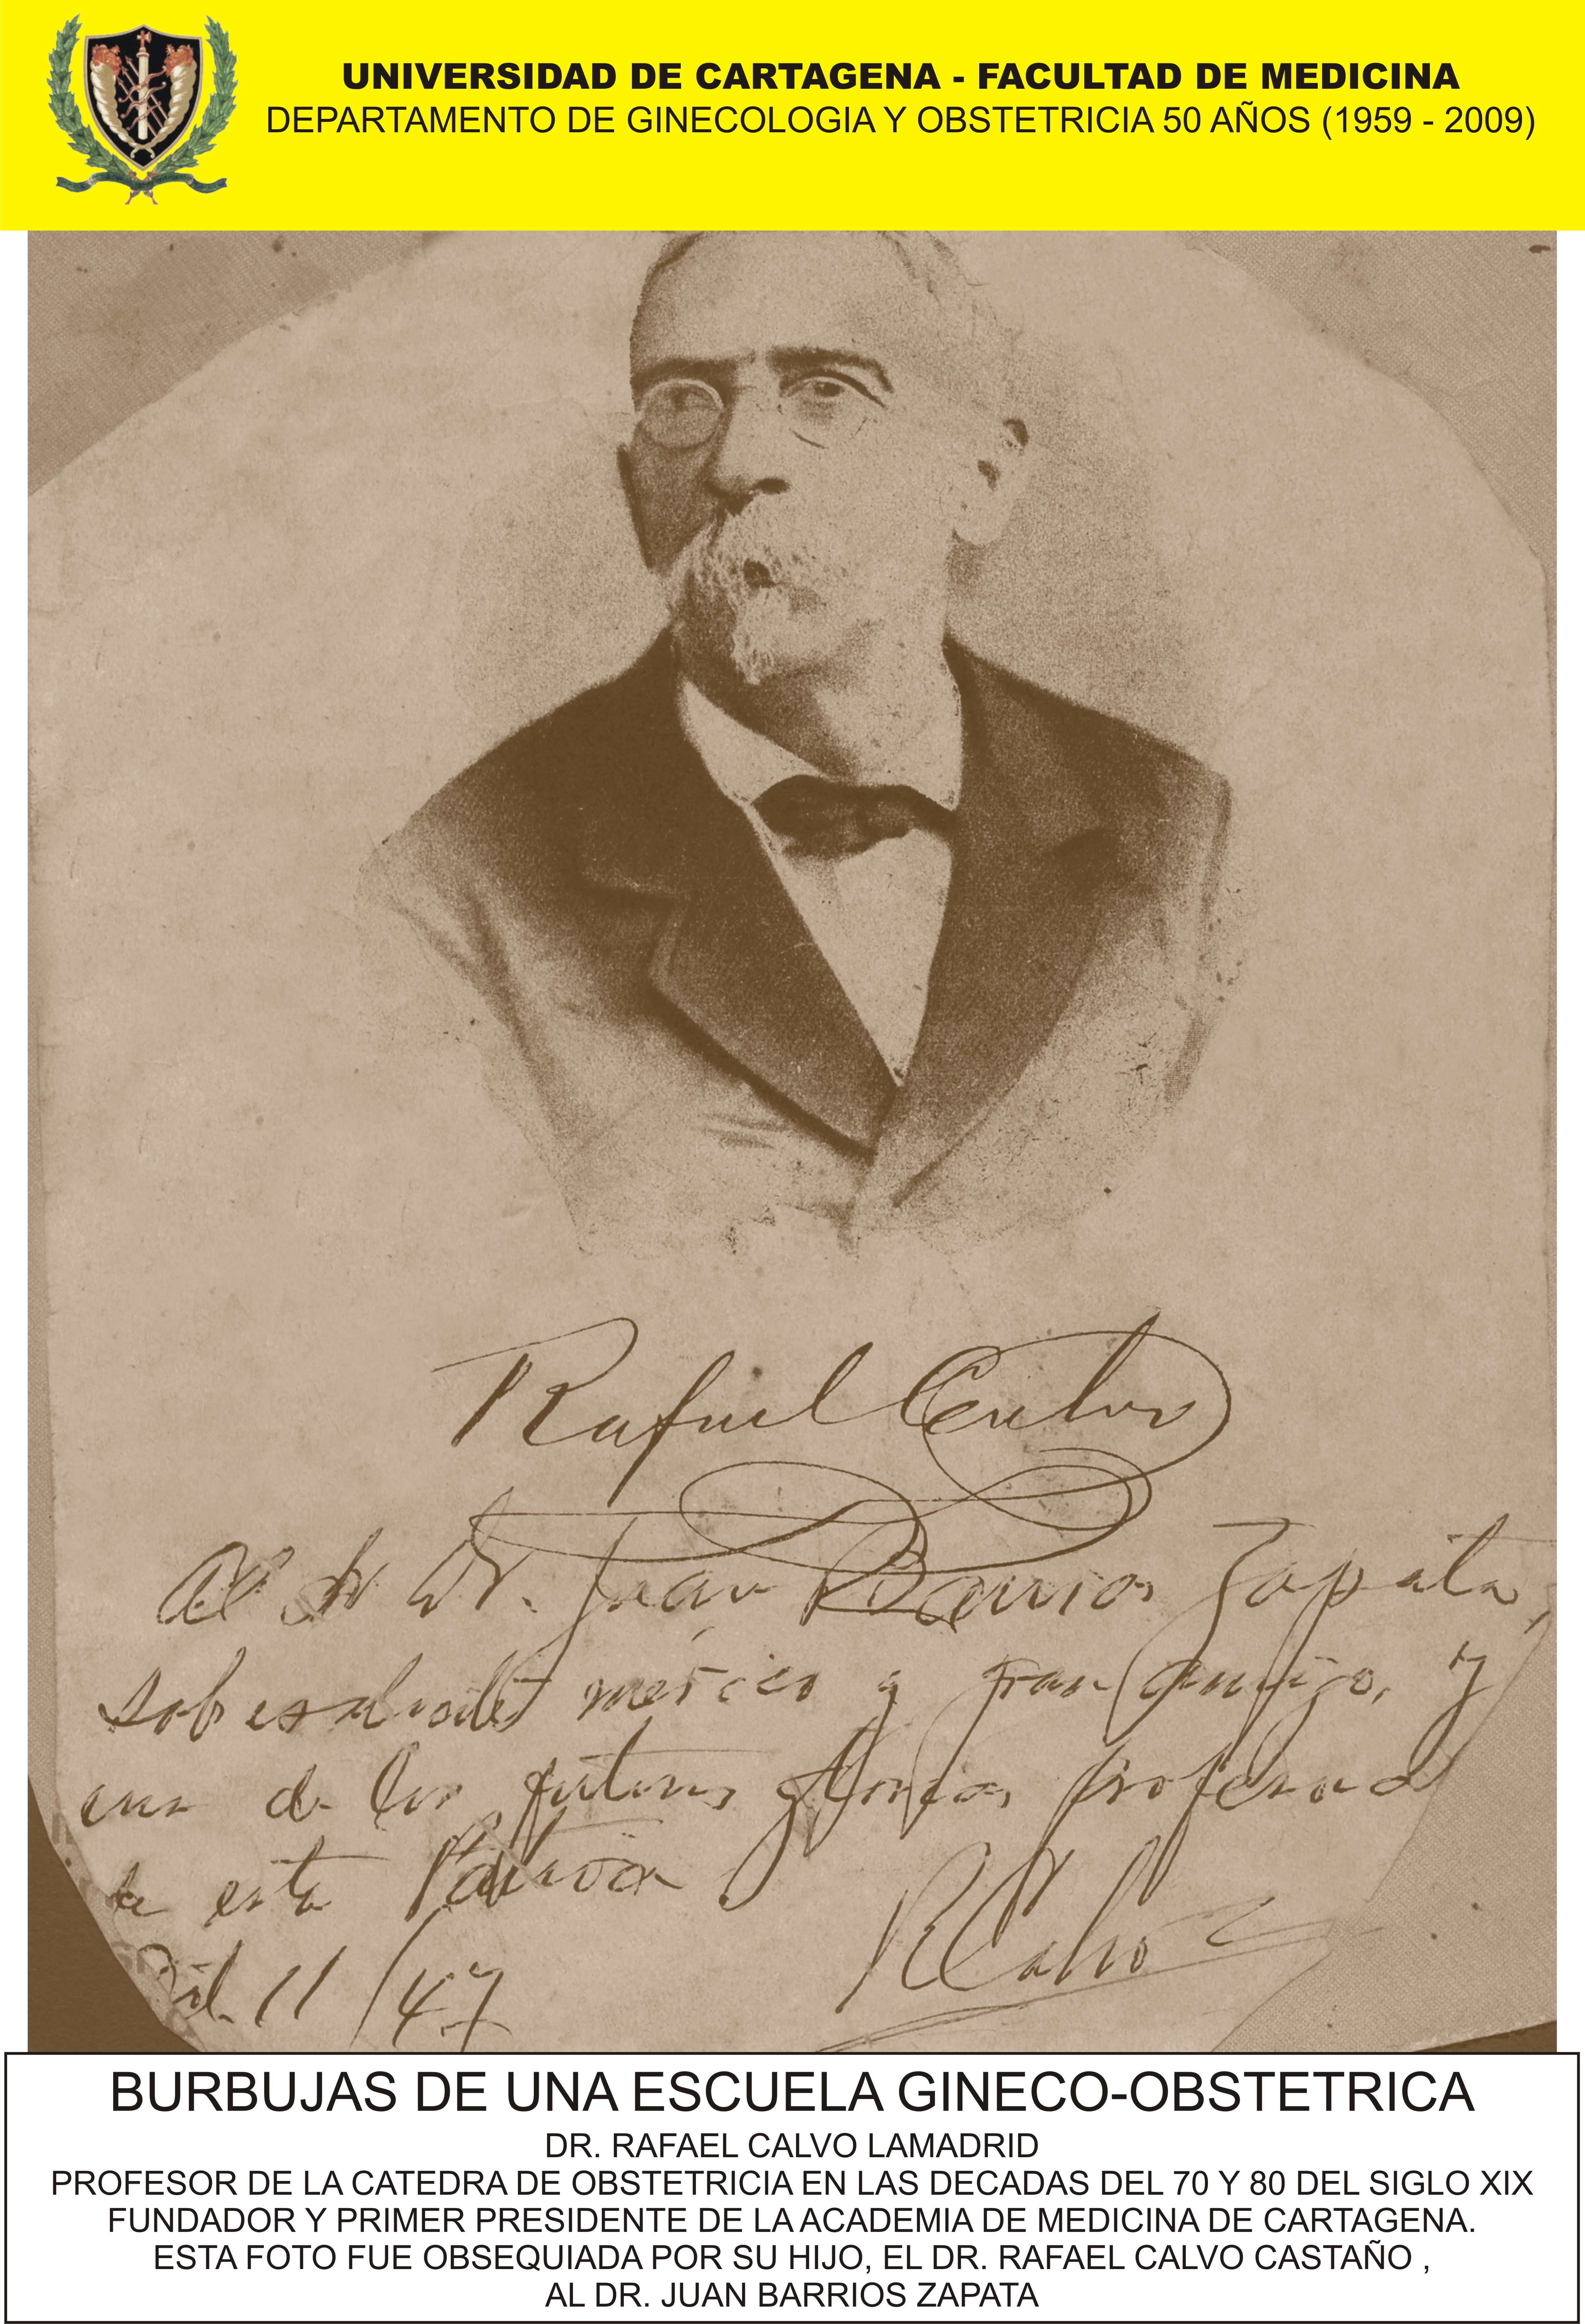 UNIVERSIDAD DE CARTAGENA - FACULTAD DE MEDICINA
DEPARTAMENTO DE GINECOLOGIA Y OBSTETRICIA 50 AÑOS (1959 - 2009)
Rafael Calvo
Al Dr. Juan Barrios Zapata,
sobresaliente médico y gran amigo, y
una de las futuras glorias
de esta Patria.
11/47
RCalvo
BURBUJAS DE UNA ESCUELA GINECO-OBSTETRICA
DR. RAFAEL CALVO LAMADRID
PROFESOR DE LA CATEDRA DE OBSTETRICIA EN LAS DECADAS DEL 70 Y 80 DEL SIGLO XIX
FUNDADOR Y PRIMER PRESIDENTE DE LA ACADEMIA DE MEDICINA DE CARTAGENA.
ESTA FOTO FUE OBSEQUIADA POR SU HIJO, EL DR. RAFAEL CALVO CASTAÑO ,
AL DR. JUAN BARRIOS ZAPATA